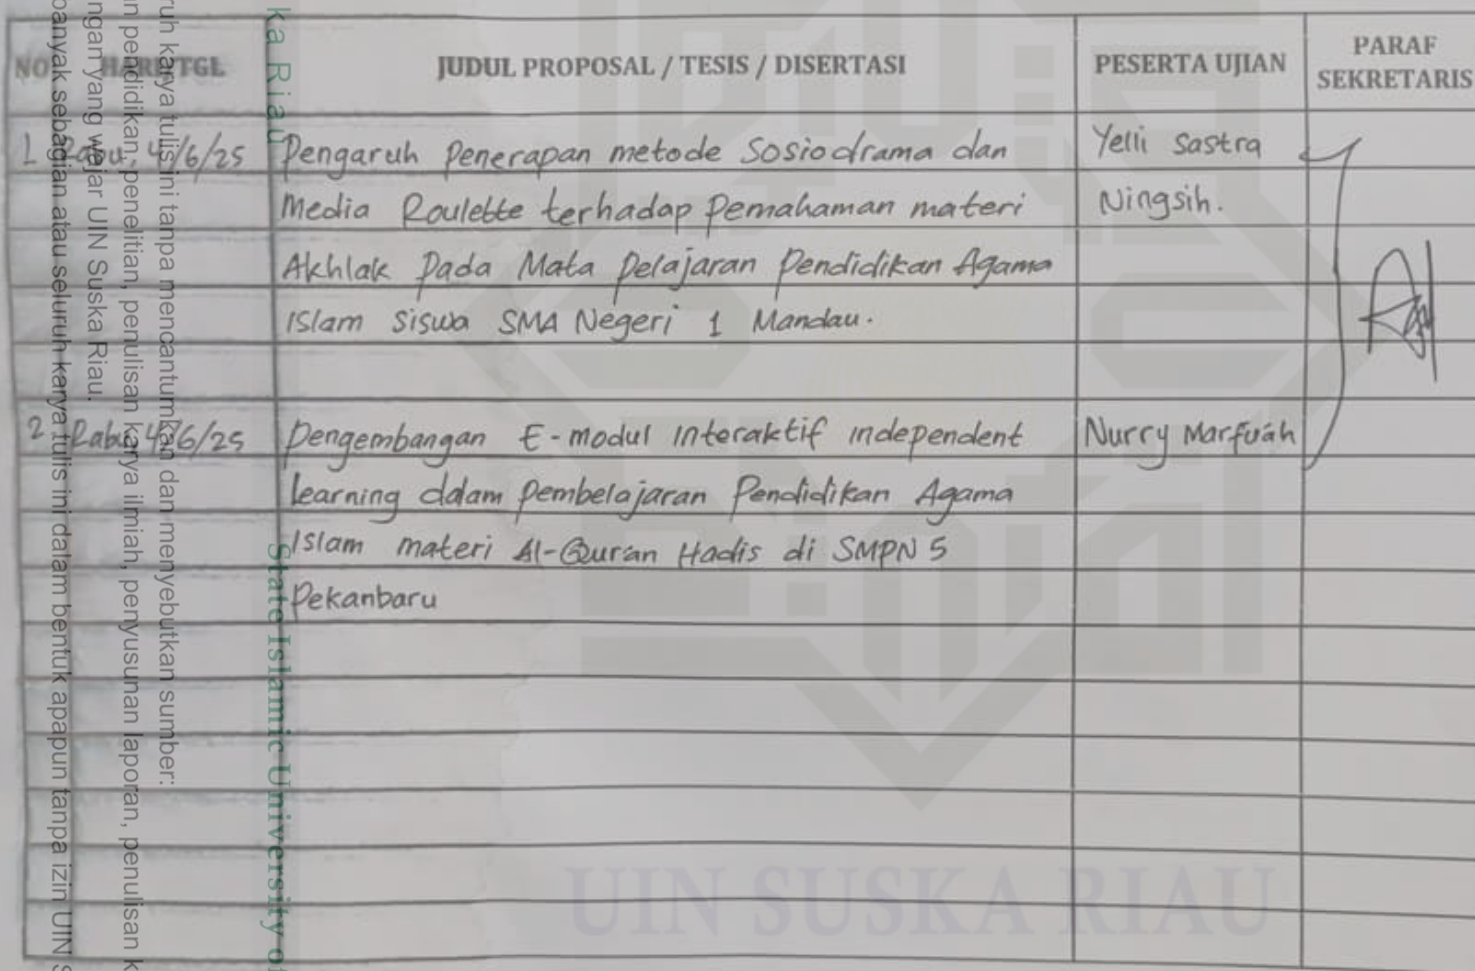 NO HARI/TGL JUDUL PROPOSAL / TESIS / DISERTASI PESERTA UJIAN PARAF SEKRETARIS
1 Rabu, 4/6/25 Pengaruh Penerapan metode Sosiodrama dan Yelli Sastra
Media Roulette terhadap Pemahaman materi Ningsih.
Akhlak Pada Mata Pelajaran Pendidikan Agama
Islam Siswa SMA Negeri 1 Mandau.
2 Rabu, 4/6/25 Pengembangan E-modul Interaktif independent Nurry Marfuah
Learning dalam Pembelajaran Pendidikan Agama
Islam materi Al-Quran Hadis di SMPN 5
Pekanbaru
ka Riau
State Islamic University of
ruh karya tulis ini tanpa mencantumkan dan menyebutkan sumber:
n pendidikan, penelitian, penulisan karya ilmiah, penyusunan laporan, penulisan k
ngan yang wajar UIN Suska Riau.
banyak sebagian atau seluruh karya tulis ini dalam bentuk apapun tanpa izin UIN S
UIN SUSKA RIAU